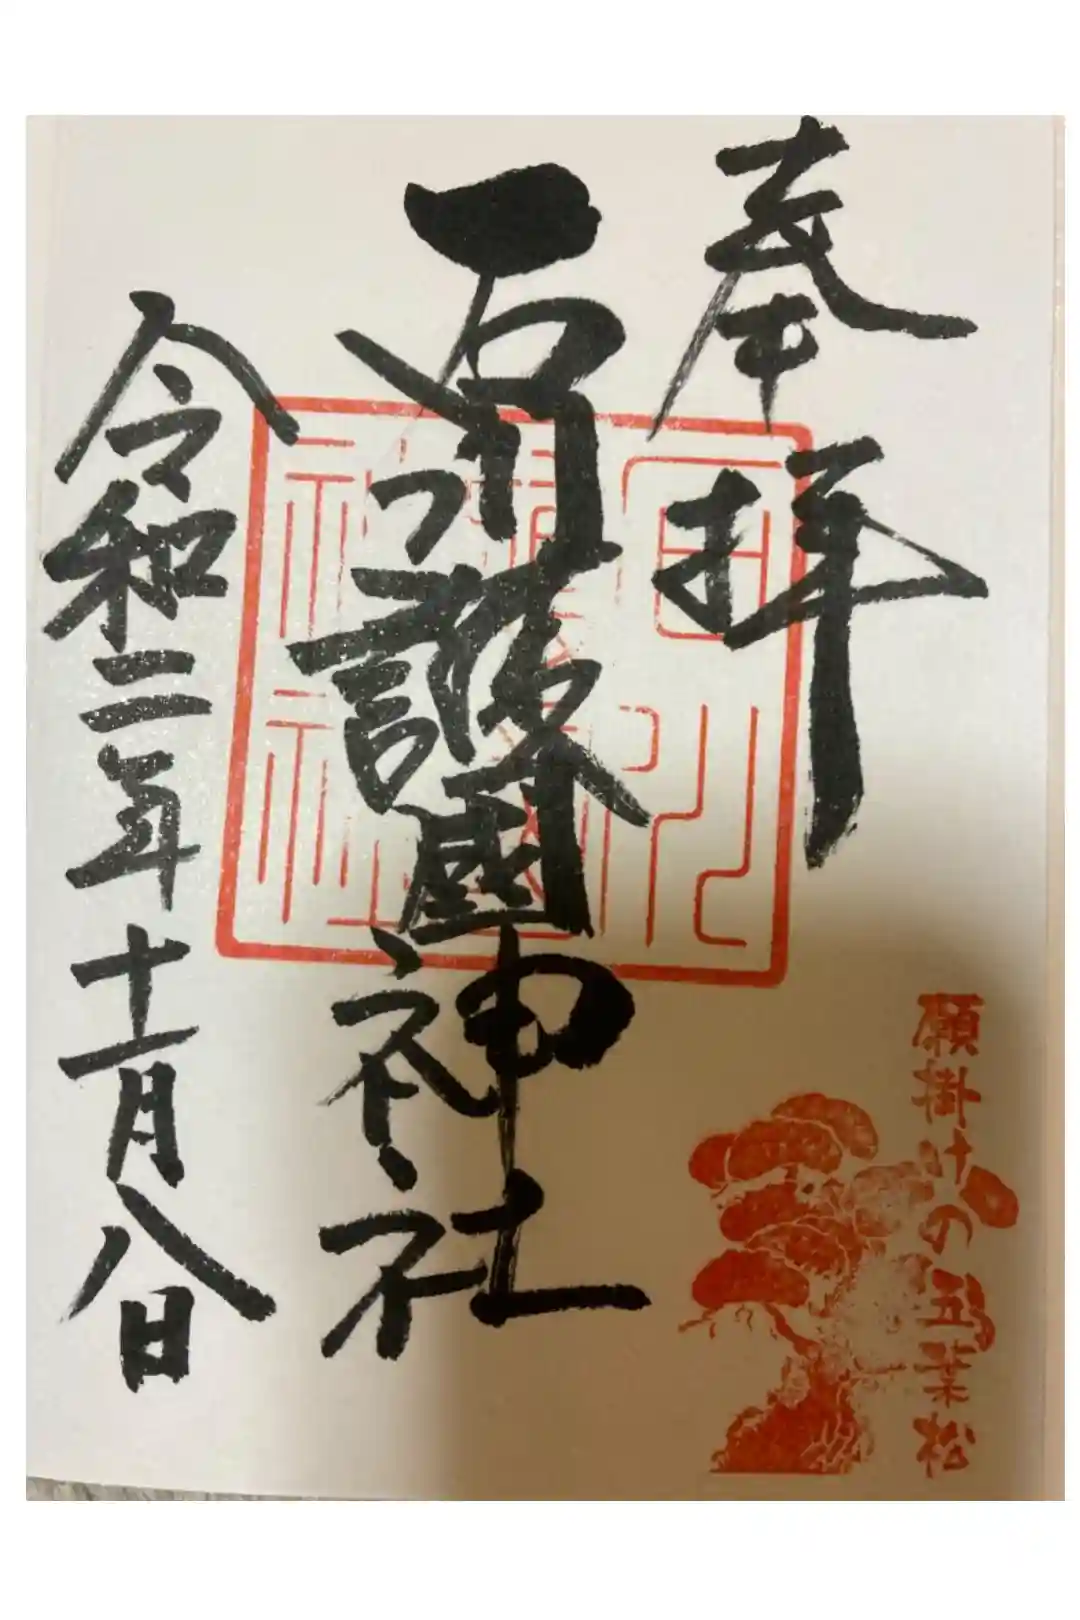 奉拝
石川護國神社
令和二年十一月八日
願掛けの五葉松